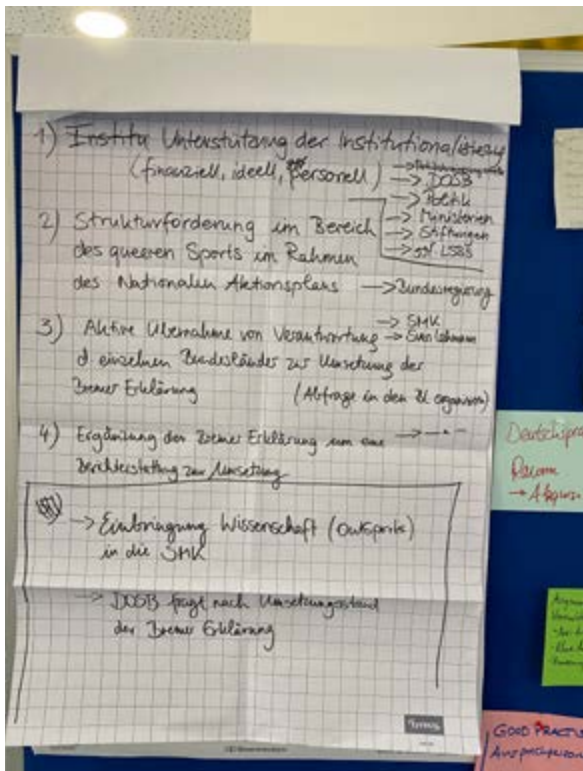 1) Institu Unterstützung der Institutionalisierung
(finanziell, ideell, personell)
→ DOSB
→ Politik
→ Ministerien
→ Stiftungen
→ ggf. LSBs
2) Strukturförderung im Bereich
des queeren Sports im Rahmen
des Nationalen Aktionsplans → Bundesregierung
3) Aktive Übernahme von Verantwortung → SMK
→ Sven Lehmann
d. einzelnen Bundesländer zur Umsetzung der
Bremer Erklärung (Abfrage in den BL organisieren)
4) Ergänzung der Bremer Erklärung um eine → — " —
Berichterstattung zur Umsetzung
→ Einbringung Wissenschaft (Outsports)
in die SMK
→ DOSB fragt nach Umsetzungsstand
der Bremer Erklärung
Deutschspra
GOOD PRACTI
Ansprechperson